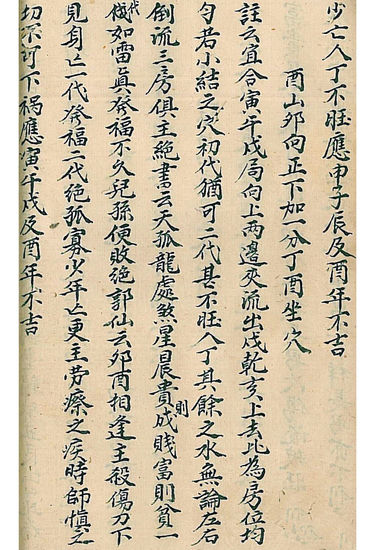 少亡人丁不旺應申子辰及酉年不吉
酉山夘向正下加一分丁酉坐穴
註云宜合寅午戌局向上兩邊夾流出戌乾亥上去比為房位均
勻若小結之穴初代猶可二代甚不旺人丁其餘之水無論左右
倒流三房俱主絶書云天孤龍處煞星晨貴成賤富則貧一
代如雷真發福不久兒孫便敗絶郭仙云夘酉相逢主殺傷刀下
見身亡一代發福二代絶孤寡少年亡更主劳瘵之疾時師慎之
切不可下禍應寅午戌及酉年不吉